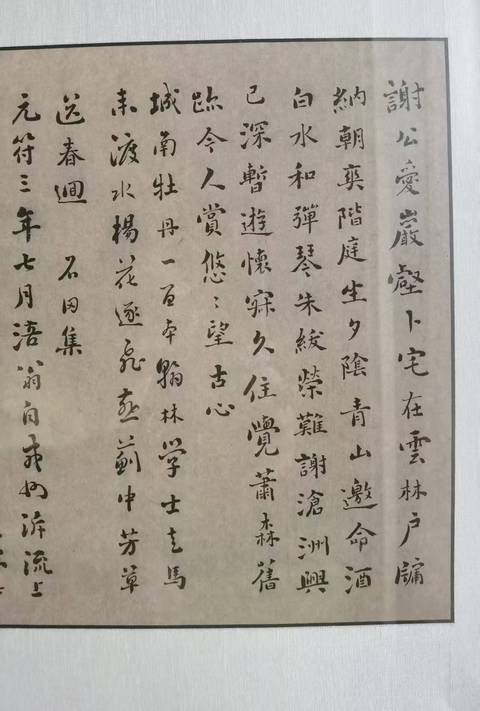 謝公愛巖壑卜宅在雲林户牖
納朝爽階庭生夕陰青山邀命酒
白水和彈琴朱紱榮難謝滄洲興
已深暫遊懷寂久住覺蕭森舊
跡今人賞悠〻望古心
城南牡丹一百本翰林学士走馬
来渡水楊花逐飛燕薊中芳草
送春迴 石田集
元符三年七月涪翁自戎州泝流上